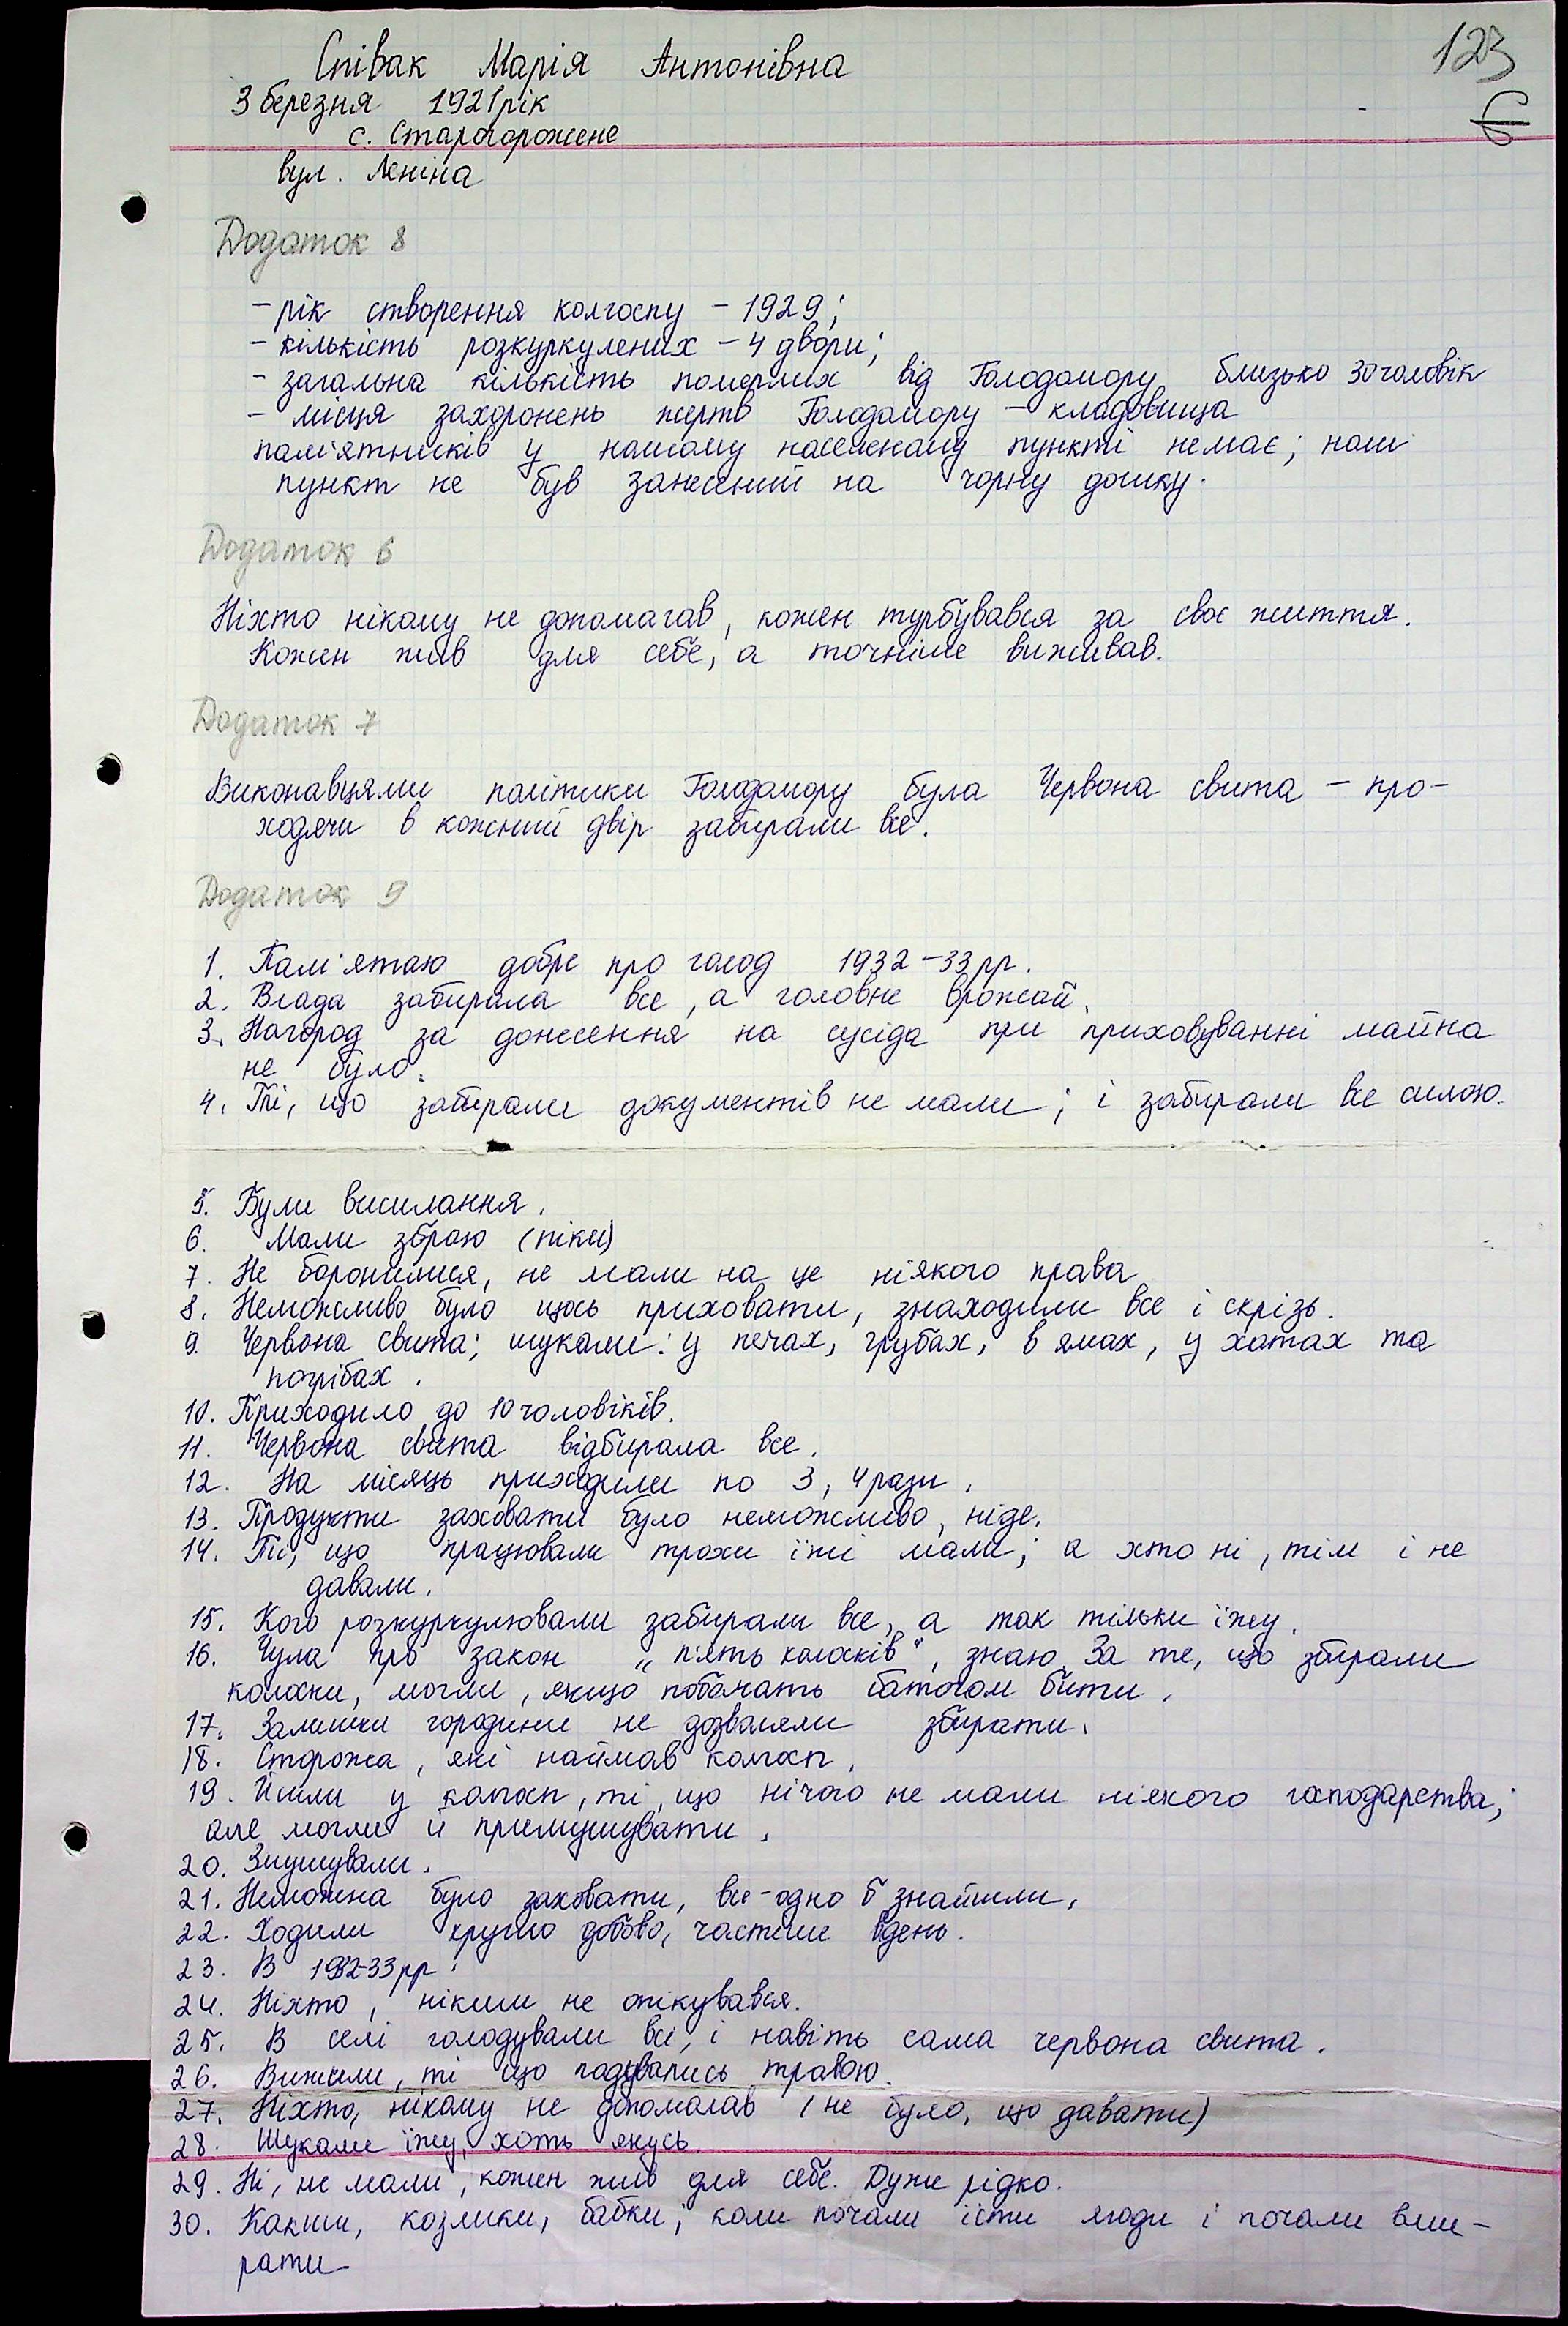 123
Співак Марія Антонівна
3 березня 1921 рік
с. Старогорожене
вул. Леніна
Додаток 8
- рік створення колгоспу - 1929;
- кількість розкуркулених - 4 двори;
- загальна кількість померлих від Голодомору близько 30 чоловік
- місця захоронень жертв Голодомору - кладовища
пам'ятників у нашому населеному пункті немає; наш
пункт не був занесений на чорну дошку.
Додаток 6
Ніхто нікому не допомагав, кожен турбувався за своє життя.
Кожен жив для себе, а точніше виживав.
Додаток 7
Виконавцями політики Голодомору була Червона свита - про-
ходячи в кожний двір забирали все.
Додаток 9
1. Пам'ятаю добре про голод 1932-33 рр.
2. Влада забирала все, а головне врожай.
3. Нагород за донесення на сусіда при приховуванні майна
не було.
4. Ті, що забирали документів не мали; і забирали все силою.
5. Були висилання.
6. Мали зброю (піки)
7. Не боронилися, не мали на це ніякого права
8. Неможливо було щось приховати, знаходили все і скрізь.
9. Червона свита; шукали: у печах, грубах, в ямах, у хатах та
погрібах.
10. Приходило до 10 чоловіків.
11. Червона свита відбирала все.
12. На місяць приходили по 3, 4 рази.
13. Продукти заховати було неможливо, ніде.
14. Ті, що працювали трохи їжі мали; а хто ні, тім і не
давали.
15. Кого розкуркулювали забирали все, а так тільки їжу.
16. Чула про закон „п'ять колосків", знаю За те, що збирали
колоски, могли, якщо побачать батогом бити.
17. Залишки городини не дозваляли збирати.
18. Сторожа, які наймав колгосп.
19. Йшли у колгосп, ті, що нічого не мали ніякого господарства;
але могли й примушувати.
20. Знущували.
21. Неможна було заховати, все-одно б знайшли.
22. Ходили кругло добово, частіше вдень.
23. В 1932-33 рр.
24. Ніхто, ніким не опікувався.
25. В селі голодували всі, і навіть сама червона свита.
26. Вижили, ті що годувались травою.
27. Ніхто, нікому не допомагав (не було, що давати)
28. Шукали їжу, хоть якусь.
29. Ні, не мали, кожен жив для себе. Дуже рідко.
30. козлики, бабки; коли почали їсти ягоди і почали вми-
рати